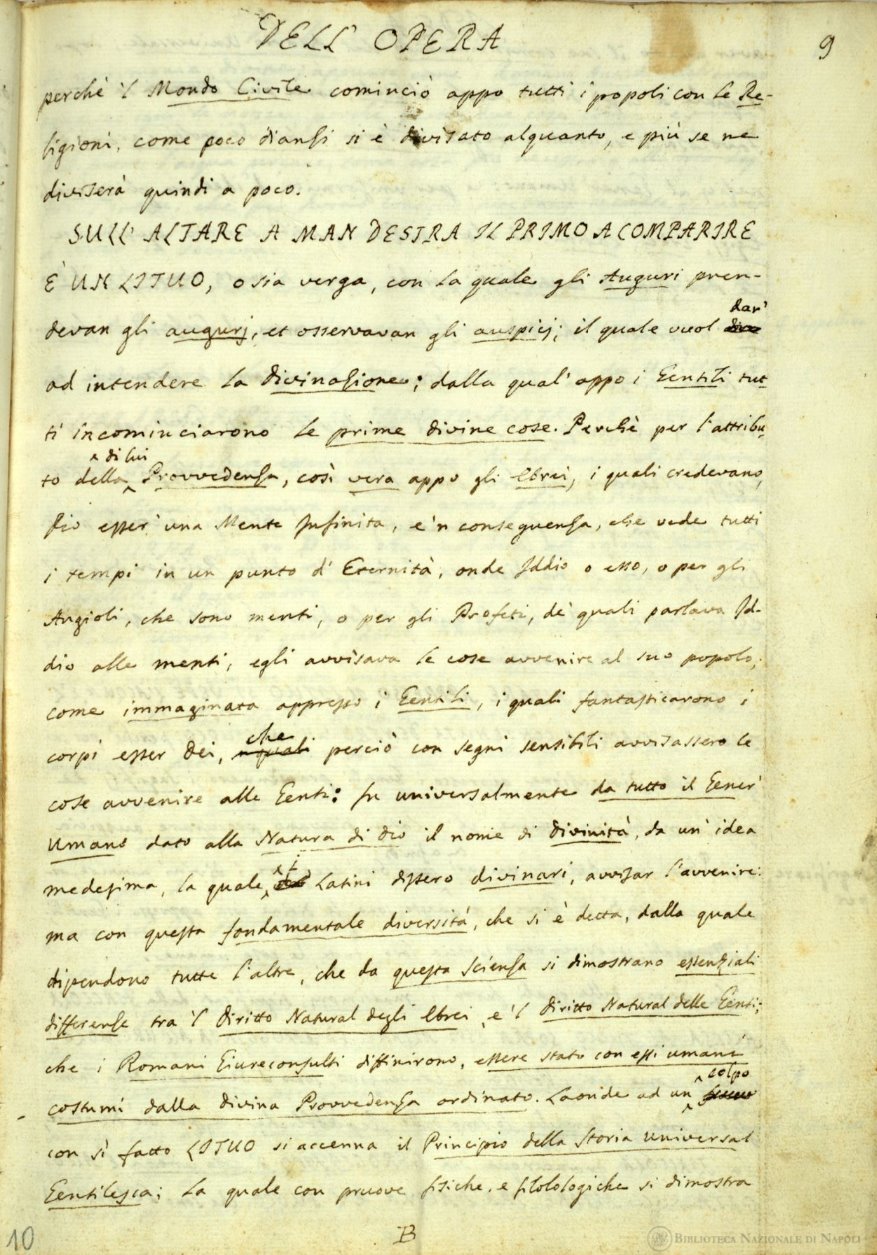 DELL' OPERA
9
perchè 'l Mondo Civile cominciò appo tutti i popoli con le Re-
ligioni, come poco dianzi si è divisato alquanto, e più se ne
diviserà quindi a poco.
SULL' ALTARE A MAN DESTRA IL PRIMO A COMPARIRE
È UN LITUO, o sia verga, con la quale gli Auguri pren-
dar'
devan gli augurj, et osservavan gli auspicj; il quale vuol dare
ad intendere la divinazione; dalla qual' appo i Gentili tut-
ti incominciarono le prime divine cose. Perchè per l'attribu-
di lui
to della Provvedenza, così vera appo gli Ebrei, i quali credevano,
Dio esser' una Mente Infinita, e 'n conseguenza, che vede tutti
i tempi in un punto d' Eternità, onde Iddio o esso, o per gli
Angioli, che sono menti, o per gli Profeti, de' quali parlava Id-
dio alle menti, egli avvisava le cose avvenire al suo popolo;
come immaginata appresso i Gentili, i quali fantasticarono i
che
corpi esser Dei, i quali perciò con segni sensibili avvisassero le
cose avvenire alle Genti: fu universalmente da tutto il Gener'
Umano dato alla Natura di Dio il nome di divinità, da un' idea
i
medesima, la quale Latini dissero divinari, avvisar l'avvenire:
ma con questa fondamentale diversità, che si è detta, dalla quale
dipendono tutte l'altre, che da questa Scienza si dimostrano essenziali
differenze tra 'l Diritto Natural degli Ebrei, e 'l diritto Natural delle Genti;
che i Romani Giureconsulti diffinirono, essere stato con essi umani
colpo
costumi dalla divina Provvedenza ordinato. Laonde ad un
con sì fatto LITUO si accenna il Principio della Storia Universal
Gentilesca; la quale con pruove fisiche, e filologiche si dimostra
B
10
BIBLIOTECA NAZIONALE DI NAPOLI